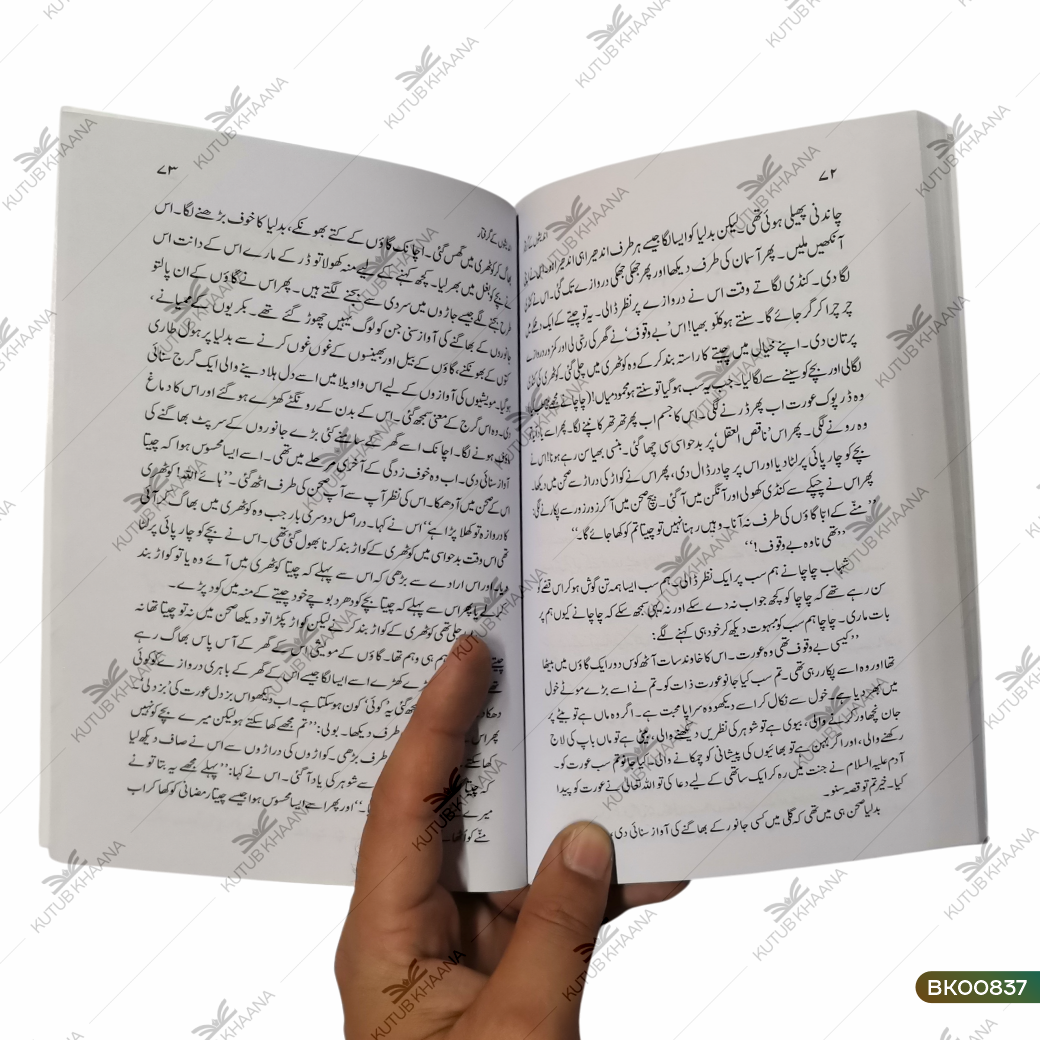 ۷۲
چاندنی پھیلی ہوئی تھی لیکن بدلیا کو ایسا لگا جیسے ہر طرف اندھیرا ہی اندھیرا
آنکھیں ملیں۔ پھر آسمان کی طرف دیکھا اور پھر جھکی جھکی دروازے تک گئی۔ اس نے
لگا دی۔ کنڈی لگاتے وقت اس نے دروازے پر نظر ڈالی۔ یہ تو چیتے کے ایک
چرچرا کر گر جائے گا۔ سنتے ہو کلو بھیا! اس 'بے وقوف' نے گھر کی رتی لی اور
پر تان دی۔ اپنے خیال میں چیتے کا راستہ بند کر کے وہ کوٹھری میں چلی گئی۔ کوٹھری کی
لگالی اور بچے کو سینے سے لگا لیا۔ جب یہ سب ہو گیا تو سنتے ہو محمود میاں! (چاچا نے
وہ ڈرپوک عورت اب پھر ڈرنے لگی۔ اس کا جسم اب پھر تھر تھر کانپنے لگا۔ پھر
وہ رونے لگی۔ پھر اس 'ناقص العقل' پر بدحواسی سی چھا گئی۔ بنسی بھیا سن رہے ہو نا! اس نے
بچے کو چارپائی پر لٹا دیا اور اس پر چادر ڈال دی، پھر اس نے کواڑ کی دراڑ سے صحن میں دیکھا۔
پھر اس نے چپکے سے کنڈی کھولی اور آنگن میں آ گئی۔ بیچ صحن میں آ کر زور زور سے پکارنے لگی:
"منّے کے ابا گاؤں کی طرف نہ آنا۔ وہیں رہنا نہیں تو چیتا تم کو کھا جائے گا۔"
"تھی نا وہ بے وقوف!"
شہاب چاچا نے ہم سب پر ایک نظر ڈالی۔ ہم سب ایسا ہمہ تن گوش ہو کر اس قصے کو
سن رہے تھے کہ چاچا کو کچھ جواب نہ دے سکے اور نہ یہی سمجھ سکے کہ چاچا نے کیوں ہم پر
بات ماری۔ چاچا ہم سب کو مبہوت دیکھ کر خود ہی کہنے لگے:
"کیسی بے وقوف تھی وہ عورت۔ اس کا خاوند سات آٹھ کوس دور ایک گاؤں میں بیٹھا
تھا اور وہ اسے پکار رہی تھی۔ تم سب کیا جانو عورت ذات کو۔ تم نے اسے بڑے موٹے خول
میں بھر دیا ہے۔ خول سے نکال کر اسے دیکھو وہ سراپا محبت ہے۔ اگر وہ ماں ہے تو بیٹے پر
جان نچھاور کرنے والی، بیوی ہے تو شوہر کی نظریں دیکھنے والی، بیٹی ہے تو ماں باپ کی لاج
رکھنے والی، اور اگر بہن ہے تو بھائیوں کی پیشانی کو چمکانے والی۔ کیا جانو تم سب عورت کو۔
آدم علیہ السلام نے جنت میں رہ کر ایک ساتھی کے لیے دعا کی تو اللہ تعالیٰ نے عورت کو پیدا
کیا۔ خیر تم تو قصہ سنو۔
بدلیا صحن ہی میں تھی کہ گلی میں کسی جانور کے بھاگنے کی آواز سنائی دی
۷۳
بھاگ کر کوٹھری میں گھس گئی۔ اچانک گاؤں کے کتے بھونکے، بدلیا کا خوف بڑھنے لگا۔ اس
نے بچے کو بغل میں بھر لیا۔ کچھ کہنے کے لیے منہ کھولا تو ڈر کے مارے اس کے دانت اس
طرح بجنے لگے جیسے جاڑوں میں سردی سے بجنے لگتے ہیں۔ پھر اس نے گاؤں کے ان پالتو
جانوروں کے بھاگنے کی آواز سنی جن کو لوگ یہیں چھوڑ گئے تھے۔ بکریوں کے ممیانے،
کتوں کے بھونکنے، گاؤں کے بیل اور بھینسوں کے غوں غوں کرنے سے بدلیا پر ہول طاری
ہو گیا۔ مویشیوں کی آوازوں کے لیے اس واویلا میں اسے دل ہلا دینے والی ایک گرج سنائی
دی۔ وہ اس گرج کے معنی سمجھ گئی۔ اس کے بدن کے رونگٹے کھڑے ہو گئے اور اس کا دماغ
ماؤف ہونے لگا۔ اچانک اسے گھر کے سامنے کئی بڑے جانوروں کے سرپٹ بھاگنے کی
آواز سنائی دی۔ اب وہ خوف زدگی کے آخری مرحلے میں تھی۔ اسے ایسا محسوس ہوا کہ چیتا
اس کے صحن میں آ دھمکا۔ اس کی نظر آپ سے آپ صحن کی طرف اٹھ گئی۔ "ہائے اللہ! کوٹھری
کا دروازہ تو کھلا پڑا ہے" اس نے کہا۔ دراصل دوسری بار جب وہ کوٹھری میں بھاگ کر آئی
تھی اس وقت بدحواسی میں کوٹھری کے کواڑ بند کرنا بھول گئی تھی۔ اس نے بچے کو چارپائی پر لٹا
دیا۔ اور اس ارادے سے بڑھی کہ اس سے پہلے کہ چیتا کوٹھری میں آئے وہ یا تو کواڑ بند
کر لے یا پھر اس سے پہلے کہ چیتا بچے کو دھر دبوچے خود چیتے کے منہ میں کود پڑے۔
چلی تھی کوٹھری کے کواڑ بند کرنے لیکن کواڑ پکڑا تو دیکھا صحن میں نہ تو چیتا تھا نہ
ہم ہی وہم تھا۔ گاؤں کے مویشی اس کے گھر کے آس پاس بھاگ رہے
کھڑے اسے ایسا لگا جیسے اس کے گھر کے باہری دروازے کو کوئی
گئی یہ 'کوئی' کون ہو سکتا ہے۔ اب دیکھو اس بزدل عورت کی بُزدلی۔
طرف دیکھا۔ بولی: "تم مجھے کھا سکتے ہو لیکن میرے بچے کو نہیں
طرف بڑھی۔ کواڑوں کی دراڑوں سے اس نے صاف دیکھ لیا
سے شوہر کی یاد آ گئی۔ اس نے کہا: "پہلے مجھے یہ بتا تو نے
" اور پھر اسے ایسا محسوس ہوا جیسے چیتا رمضانی کو کھا کر اب
منّے کو
KUTUB KHAANA
BK00837